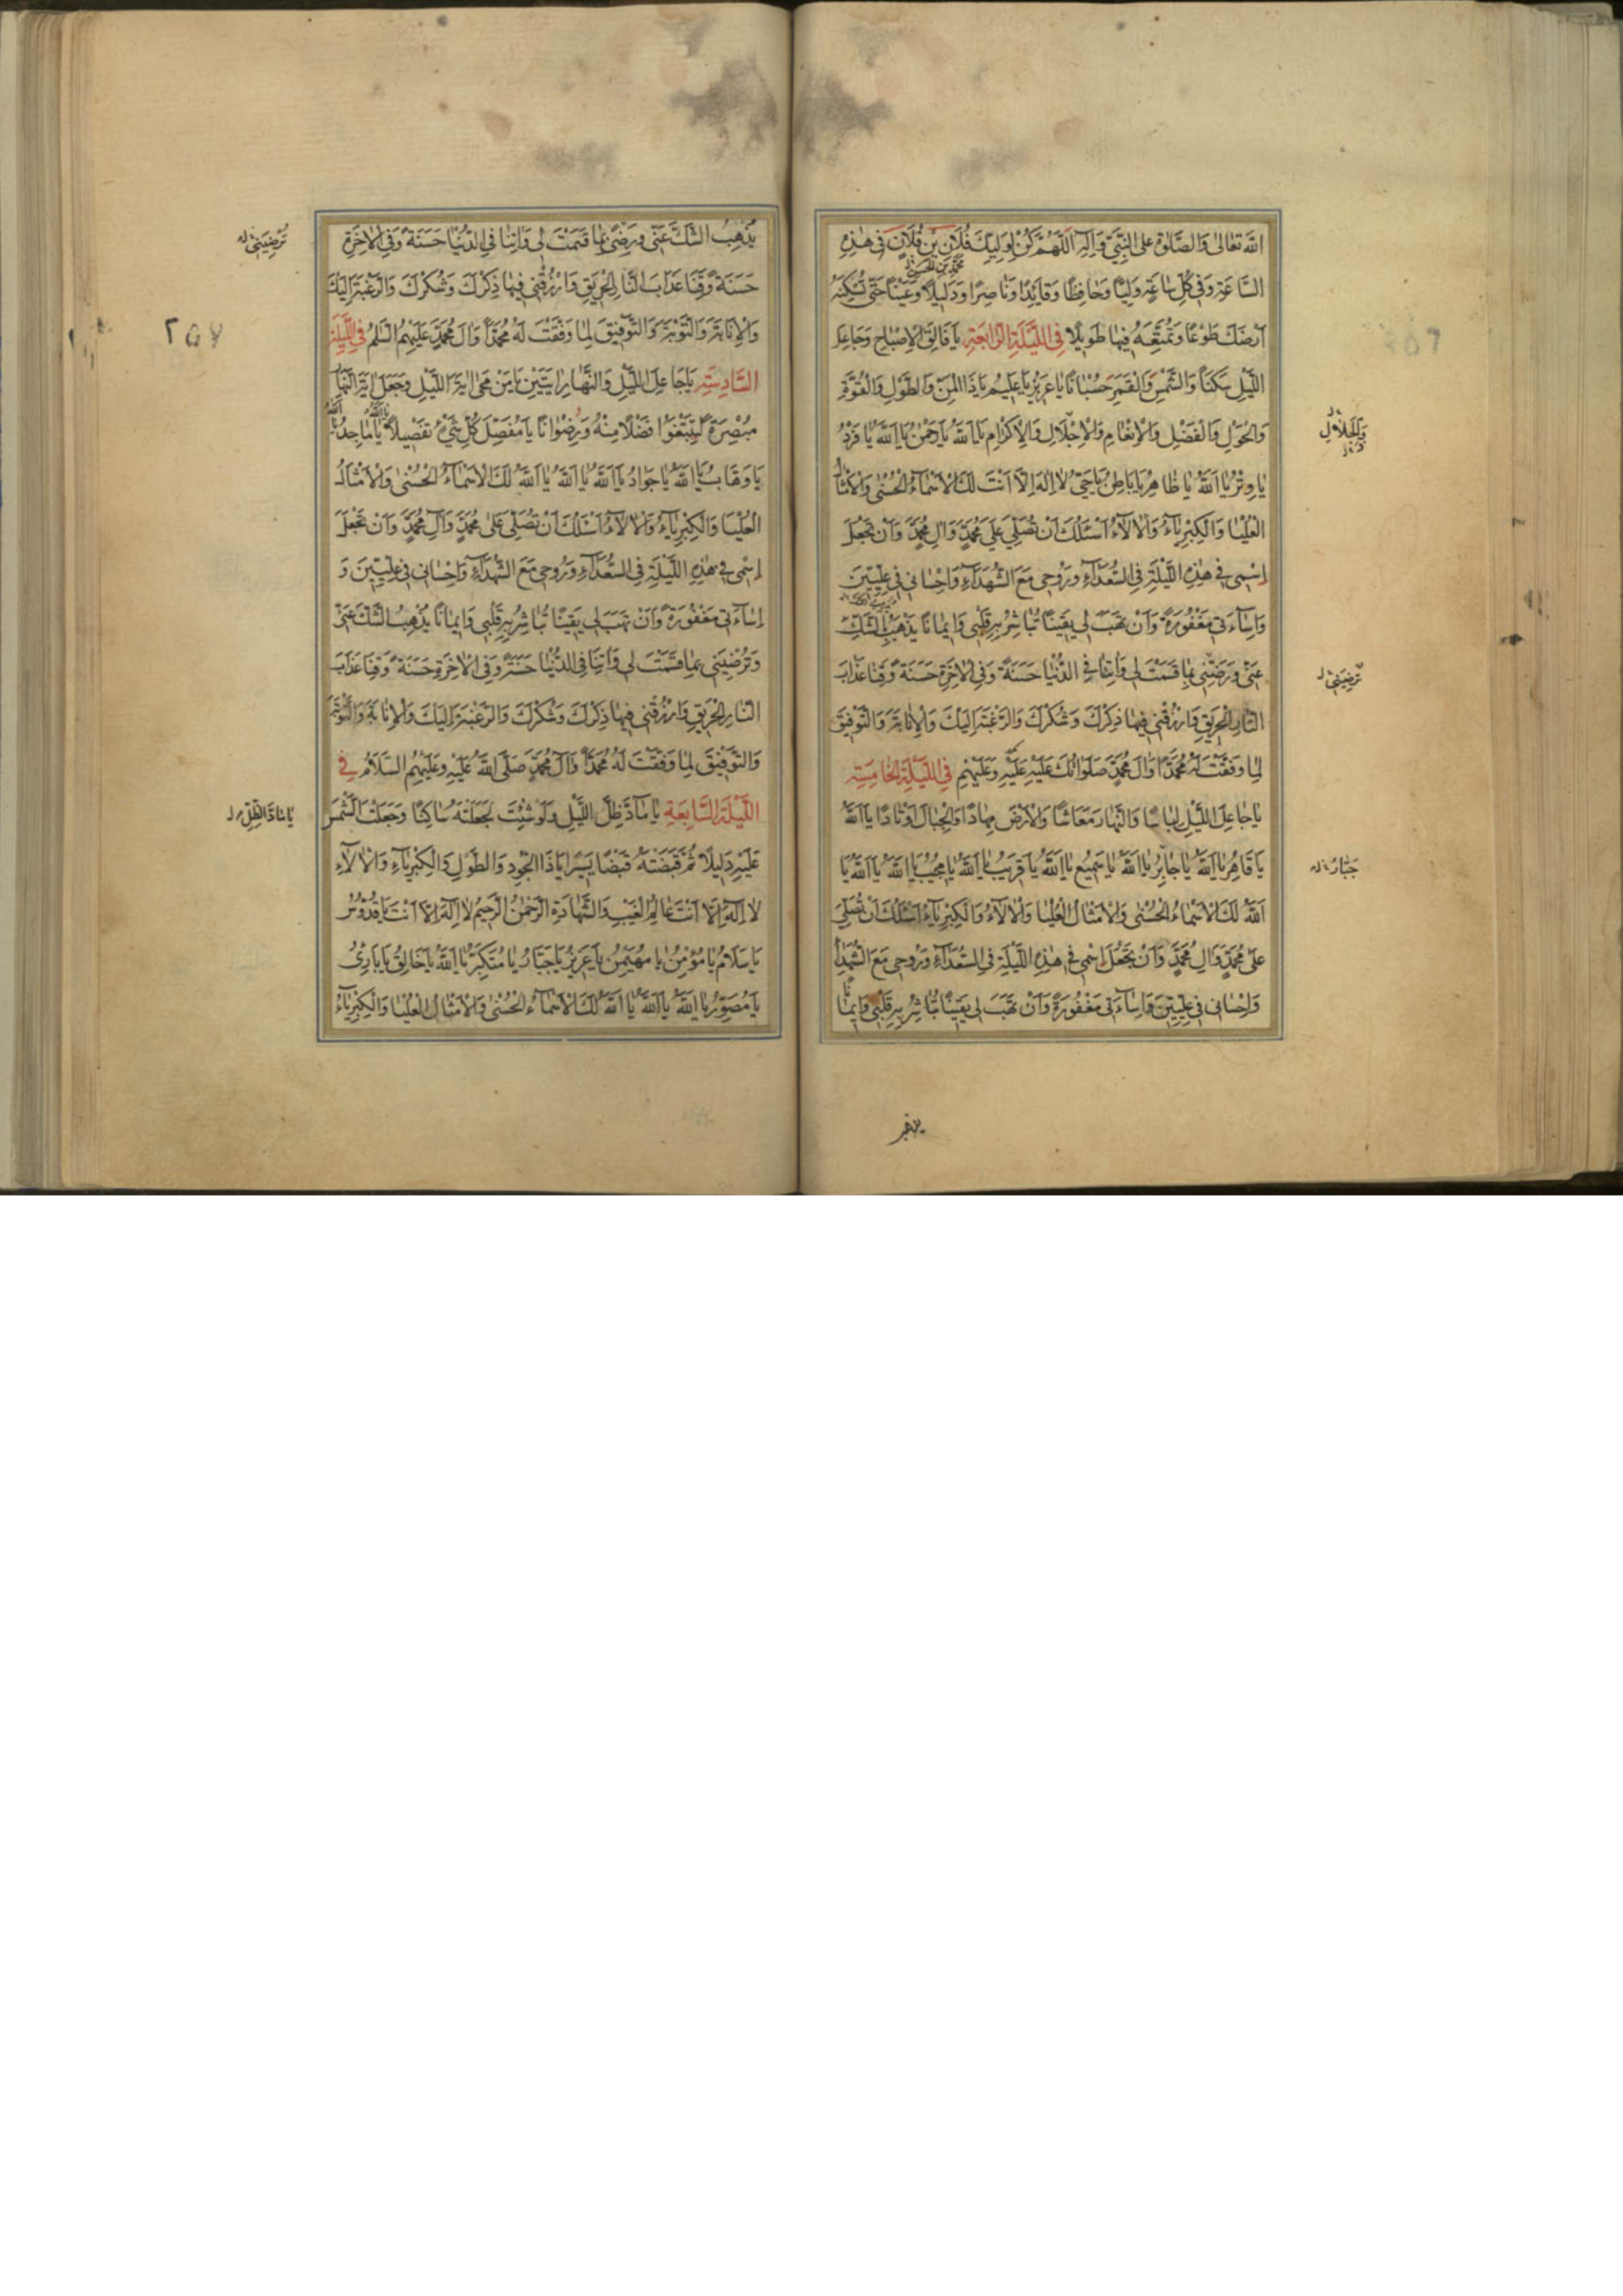 اللَّهِ تَعَالٰى وَالصَّلٰوةِ عَلَى النَّبِيِّ وَآلِهِ اَللّٰهُمَّ كُنْ لِوَلِيِّكَ فُلَانِ بْنِ فُلَانٍ فِي هٰذِهِ
مُحَمَّدِ بْنِ الْحَسَنِ
السَّاعَةِ وَفِي كُلِّ سَاعَةٍ وَلِيًّا وَحَافِظًا وَقَائِدًا وَنَاصِرًا وَدَلِيلًا وَعَيْنًا حَتّٰى تُسْكِنَهُ
اَرْضَكَ طَوْعًا وَتُمَتِّعَهُ فِيهَا طَوِيلًا فِي اللَّيْلَةِ الرَّابِعَةِ يَا فَالِقَ الْاِصْبَاحِ وَجَاعِلَ
اللَّيْلِ سَكَنًا وَالشَّمْسِ وَالْقَمَرِ حُسْبَانًا يَا عَزِيزُ يَا عَلِيمُ يَا ذَا الْمَنِّ وَالطَّوْلِ وَالْقُوَّةِ
وَالْحَوْلِ وَالْفَضْلِ وَالْاِنْعَامِ وَالْاِجْلَالِ وَالْاِكْرَامِ يَا اَللَّهُ يَا رَحْمٰنُ يَا اَللَّهُ يَا فَرْدُ
وَالْجَلَالِ
يَا وِتْرُ يَا اَللَّهُ يَا ظَاهِرُ يَا بَاطِنُ يَا حَيُّ لَا اِلٰهَ اِلَّا اَنْتَ لَكَ الْاَسْمَاءُ الْحُسْنٰى وَالْاَمْثَالُ
الْعُلْيَا وَالْكِبْرِيَاءُ وَالْاٰلَاءُ اَسْئَلُكَ اَنْ تُصَلِّيَ عَلٰى مُحَمَّدٍ وَاٰلِ مُحَمَّدٍ وَاَنْ تَجْعَلَ
اِسْمِي فِي هٰذِهِ اللَّيْلَةِ فِي السُّعَدَاءِ وَرُوحِي مَعَ الشُّهَدَاءِ وَاِحْسَانِي فِي عِلِّيِّينَ
وَاِسَاءَتِي مَغْفُورَةً وَاَنْ تَهَبَ لِي يَقِينًا تُبَاشِرُ بِهِ قَلْبِي وَاِيمَانًا يَذْهَبُ بِالشَّكِّ
عَنِّي وَرَضِّنِي بِمَا قَسَمْتَ لِي وَاٰتِنَا فِي الدُّنْيَا حَسَنَةً وَفِي الْاٰخِرَةِ حَسَنَةً وَقِنَا عَذَابَ
تُرْضِيَنِي
النَّارِ الْحَرِيقِ وَارْزُقْنِي فِيهَا ذِكْرَكَ وَشُكْرَكَ وَالرَّغْبَةَ اِلَيْكَ وَالْاِنَابَةَ وَالتَّوْفِيقَ
لِمَا وَفَّقْتَ لَهُ مُحَمَّدًا وَاٰلَ مُحَمَّدٍ صَلَوَاتُكَ عَلَيْهِ وَعَلَيْهِمْ فِي اللَّيْلَةِ الْخَامِسَةِ
يَا جَاعِلَ اللَّيْلِ لِبَاسًا وَالنَّهَارِ مَعَاشًا وَالْاَرْضِ مِهَادًا وَالْجِبَالِ اَوْتَادًا يَا اَللَّهُ
يَا قَاهِرُ يَا اَللَّهُ يَا جَابِرُ يَا اَللَّهُ يَا سَمِيعُ يَا اَللَّهُ يَا قَرِيبُ يَا اَللَّهُ يَا مُجِيبُ يَا اَللَّهُ يَا اَللَّهُ يَا
جَبَّارُ
اَللَّهُ لَكَ الْاَسْمَاءُ الْحُسْنٰى وَالْاَمْثَالُ الْعُلْيَا وَالْاٰلَاءُ وَالْكِبْرِيَاءُ اَسْئَلُكَ اَنْ تُصَلِّيَ
عَلٰى مُحَمَّدٍ وَاٰلِ مُحَمَّدٍ وَاَنْ تَجْعَلَ اسْمِي فِي هٰذِهِ اللَّيْلَةِ فِي السُّعَدَاءِ وَرُوحِي مَعَ الشُّهَدَاءِ
وَاِحْسَانِي فِي عِلِّيِّينَ وَاِسَاءَتِي مَغْفُورَةً وَاَنْ تَهَبَ لِي يَقِينًا تُبَاشِرُ بِهِ قَلْبِي وَاِيمَانًا
يُذْهِبُ الشَّكَّ عَنِّي وَرَضِّنِي بِمَا قَسَمْتَ لِي وَاٰتِنَا فِي الدُّنْيَا حَسَنَةً وَفِي الْاٰخِرَةِ
تُرْضِيَنِي
حَسَنَةً وَقِنَا عَذَابَ النَّارِ الْحَرِيقِ وَارْزُقْنِي فِيهَا ذِكْرَكَ وَشُكْرَكَ وَالرَّغْبَةَ اِلَيْكَ
وَالْاِنَابَةَ وَالتَّوْبَةَ وَالتَّوْفِيقَ لِمَا وَفَّقْتَ لَهُ مُحَمَّدًا وَاٰلَ مُحَمَّدٍ عَلَيْهِمُ السَّلَمُ فِي اللَّيْلَةِ
٢٥٧
السَّادِسَةِ يَا جَاعِلَ اللَّيْلِ وَالنَّهَارِ اٰيَتَيْنِ يَا مَنْ مَحٰى اٰيَةَ اللَّيْلِ وَجَعَلَ اٰيَةَ النَّهَارِ
مُبْصِرَةً لِتَبْتَغُوا فَضْلًا مِنْهُ وَرِضْوَانًا يَا مُفَصِّلَ كُلِّ شَيْءٍ تَفْصِيلًا يَا اَللَّهُ يَا مَاجِدُ يَا اَللَّهُ
يَا وَهَّابُ يَا اَللَّهُ يَا جَوَادُ يَا اَللَّهُ يَا اَللَّهُ يَا اَللَّهُ لَكَ الْاَسْمَاءُ الْحُسْنٰى وَالْاَمْثَالُ
الْعُلْيَا وَالْكِبْرِيَاءُ وَالْاٰلَاءُ اَسْئَلُكَ اَنْ تُصَلِّيَ عَلٰى مُحَمَّدٍ وَاٰلِ مُحَمَّدٍ وَاَنْ تَجْعَلَ
اِسْمِي فِي هٰذِهِ اللَّيْلَةِ فِي السُّعَدَاءِ وَرُوحِي مَعَ الشُّهَدَاءِ وَاِحْسَانِي فِي عِلِّيِّينَ وَ
اِسَاءَتِي مَغْفُورَةً وَاَنْ تَهَبَ لِي يَقِينًا تُبَاشِرُ بِهِ قَلْبِي وَاِيمَانًا يُذْهِبُ الشَّكَّ عَنِّي
وَتُرْضِيَنِي بِمَا قَسَمْتَ لِي وَاٰتِنَا فِي الدُّنْيَا حَسَنَةً وَفِي الْاٰخِرَةِ حَسَنَةً وَقِنَا عَذَابَ
النَّارِ الْحَرِيقِ وَارْزُقْنِي فِيهَا ذِكْرَكَ وَشُكْرَكَ وَالرَّغْبَةَ اِلَيْكَ وَالْاِنَابَةَ وَالتَّوْبَةَ
وَالتَّوْفِيقَ لِمَا وَفَّقْتَ لَهُ مُحَمَّدًا وَاٰلَ مُحَمَّدٍ صَلَّى اللَّهُ عَلَيْهِ وَعَلَيْهِمُ السَّلَامُ فِي
اللَّيْلَةِ السَّابِعَةِ يَا مَادَّ ظِلِّ اللَّيْلِ وَلَوْ شِئْتَ لَجَعَلْتَهُ سَاكِنًا وَجَعَلْتَ الشَّمْسَ
يَا مَادَّ الظِّلِّ
عَلَيْهِ دَلِيلًا ثُمَّ قَبَضْتَهُ قَبْضًا يَسِيرًا يَا ذَا الْجُودِ وَالطَّوْلِ وَالْكِبْرِيَاءِ وَالْاٰلَاءِ
لَا اِلٰهَ اِلَّا اَنْتَ عَالِمُ الْغَيْبِ وَالشَّهَادَةِ الرَّحْمٰنُ الرَّحِيمُ لَا اِلٰهَ اِلَّا اَنْتَ يَا قُدُّوسُ
يَا سَلَامُ يَا مُؤْمِنُ يَا مُهَيْمِنُ يَا عَزِيزُ يَا جَبَّارُ يَا مُتَكَبِّرُ يَا اَللَّهُ يَا خَالِقُ يَا بَارِئُ
يَا مُصَوِّرُ يَا اَللَّهُ يَا اَللَّهُ يَا اَللَّهُ لَكَ الْاَسْمَاءُ الْحُسْنٰى وَالْاَمْثَالُ الْعُلْيَا وَالْكِبْرِيَاءُ